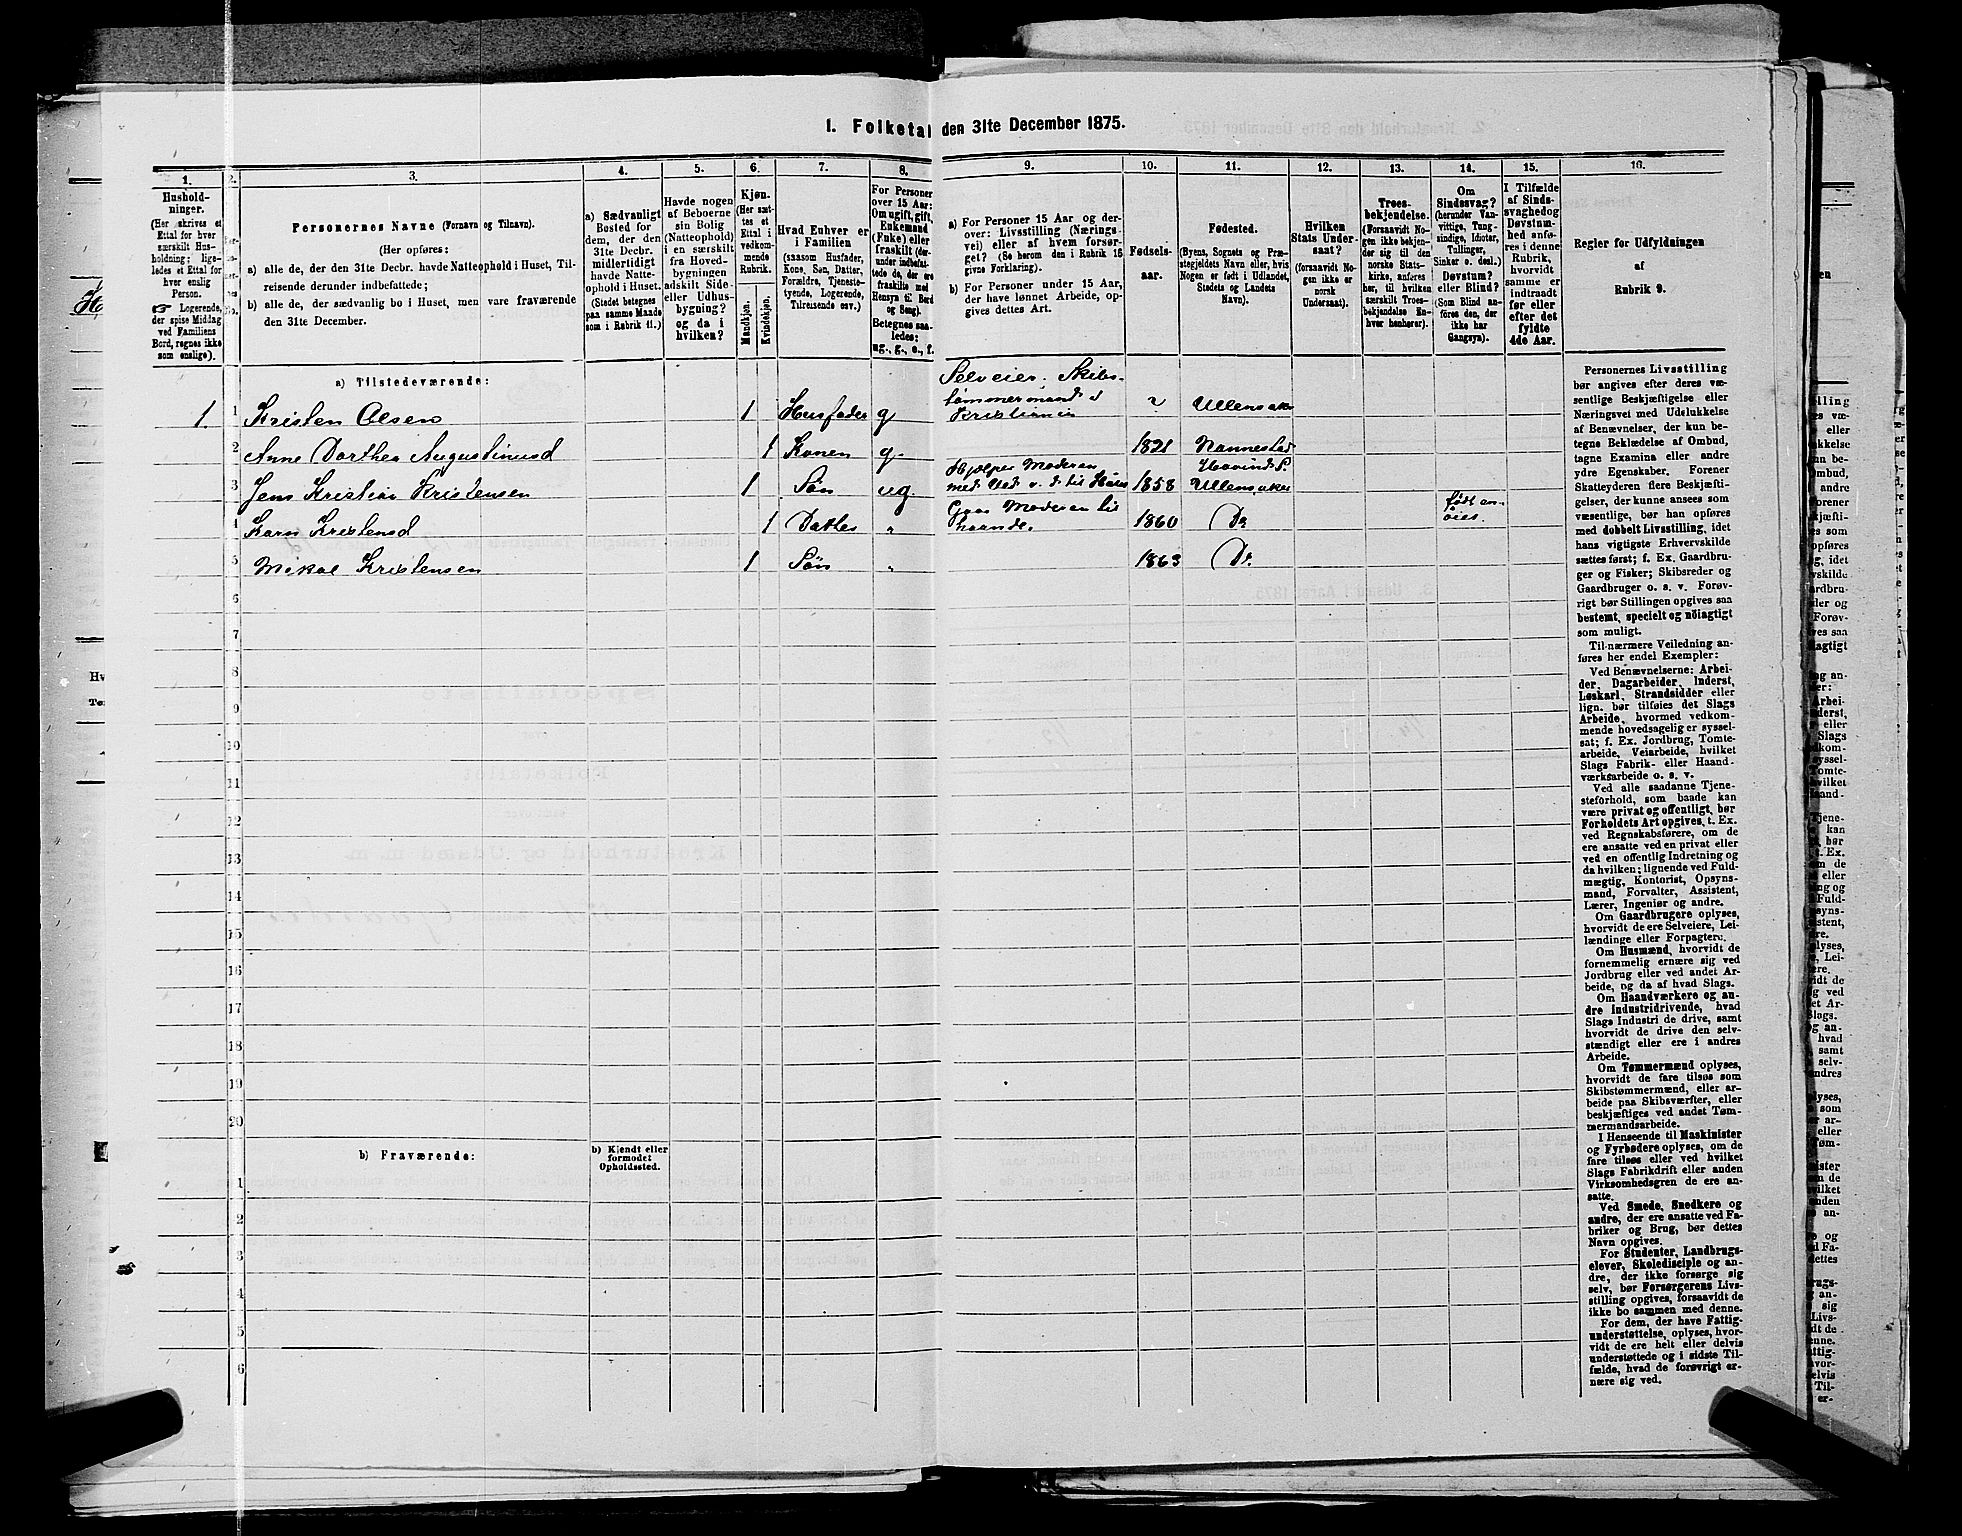 I. Folketal den 31te December 1875.
1. 2. 3. 4. 5. 6. 7. 8. 9. 10. 11. 12. 13. 14. 15. 16.
Hushold-
ninger.
(Her skrives et
Ettal for hver
særskilt Hus-
holdning; lige-
ledes et Ettal for
hver enslig
Person.
☞ Logerende,
der spise Middag
ved Familiens
Bord, regnes ikke
som enslige).
Personernes Navne (Fornavn og Tilnavn).
(Her opføres:
a) alle de, der den 31te Decbr. havde Natteophold i Huset, Til-
reisende derunder indbefattede;
b) alle de, der sædvanlig bo i Huset, men vare fraværende
den 31te December.
a) Sædvanligt
Bosted for
dem, der den
31te Decbr.
midlertidigt
havde Natte-
ophold i Huset.
(Stedet betegnes
paa samme Maade
som i Rubrik 11.)
Havde nogen
af Beboerne
sin Bolig
(Natteophold)
i en særskilt
fra Hoved-
bygningen
adskilt Side-
eller Udhus-
bygning?
og da i
hvilken?
Kjøn.
(Her sæt-
tes et
Ettal i
vedkom-
mende
Rubrik.
Mandkjøn.
Kvindekjøn.
Hvad Enhver er
i Familien
(saasom Husfader,
Kone, Søn, Datter,
Forældre, Tjeneste-
tyende, Logerende,
Tilreisende osv.)
For Personer
over 15 Aar:
Om ugift, gift,
Enkemand
(Enke) eller
fraskilt (der-
under indbefat-
tede de, der ere
fraskilte med
Hensyn til Bord
og Seng).
Betegnes saa-
ledes:
ug., g., e., f.
a) For Personer 15 Aar og der-
over: Livsstilling (Nærings-
vei) eller af hvem forsør-
get? (Se herom den i Rubrik 16
givne Forklaring).
b) For Personer under 15 Aar,
der have lønnet Arbeide, op-
gives dettes Art.
Fødsels-
aar.
Fødested.
(Byens, Sognets og Præ-
stegjeldets Navn eller, hvis
Nogen er født i Udlandet,
Stedets og Landets
Navn).
Hvilken
Stats Under-
saat?
(forsaavidt No-
gen ikke er
norsk
Undersaat).
Troes-
bekjendelse.
(Forsaavidt No-
gen ikke bekjen-
der sig til den
norske Stats-
kirke, anføres
her, til hvilken
særskilt Troes-
bekjendelse En-
hver henhører).
Om
Sindssvag?
(herunder Van-
vittige, Tung-
sindige, Idioter,
Tullinger,
Sinker o. desl.)
Døvstum?
eller Blind?
(Som Blind an-
føres den, der
ikke har
Gangsyn).
I Tilfælde
af Sinds-
svaghed og
Døvstum-
hed anfø-
res i denne
Rubrik,
hvorvidt
samme er
indtraadt
før eller
efter det
fyldte
4de Aar.
Regler for Udfyldningen
af
Rubrik 9.
a) Tilstedeværende:
Selveier, Skibs-
tømmermand i
1. 1 Kristen Olsen 1 Husfader g Kristiania ? Ullensaker
2 Anne Dorthea Augustinusd 1 Konen g. 1821 Nannestad
Hjælper Moderen Hovind S.
3 Jens Kristian Kristensen 1 Søn ug. med Ved o. d. til Huus 1858 Ullensaker
Gaar Moderen til født en-
4 Karn Kristensd 1 Datter " haande. 1860 Do øiet.
5 Mikal Kristensen 1 Søn " 1863 Do
6
7
8
9
10
11
12
13
14
15
16
17
18
19
20
b) Fraværende:
b) Kjendt eller
formodet
Opholdssted.
1
2
3
4
5
6
Personernes Livsstilling
bør angives efter deres væ-
sentlige Beskjæftigelse eller
Næringsvei med Udelukkelse
af Benævnelser, der kun be-
tegne Beklædelse af Ombud,
tagne Examina eller andre
ydre Egenskaber. Forener
Skatteyderen flere Beskjæfti-
gelser, der kunne ansees som
væsentlige, bør han opføres
med dobbelt Livsstilling, idet
hans vigtigste Erhvervskilde
sættes først; f. Ex. Gaardbru-
ger og Fisker; Skibsreder og
Gaardbruger o. s. v. Forøv-
rigt bør Stillingen opgives saa
bestemt, specielt og nöiagtigt
som muligt.
Til nærmere Veiledning an-
føres her endel Exempler:
Ved Benævnelserne: Arbei-
der, Dagarbeider, Inderst,
Løskarl, Strandsidder eller
lign. bør tilføies det Slags
Arbeide, hvormed vedkom-
mende hovedsagelig er syssel-
sat; f. Ex. Jordbrug, Tomte-
arbeide, Veiarbeide, hvilket
Slags Fabrik- eller Haand-
værksarbeide o. s. v.
Ved alle saadanne Tjene-
steforhold, som baade kan
være privat og offentligt, bør
Forholdets Art opgives, t. Ex.
ved Regnskabsførere, om de
ere ansatte ved en privat eller
ved en offentlig Indretning og
da hvilken; lignende ved Fuld-
mægtig, Kontorist, Opsyns-
mand, Forvalter, Assistent,
Lærer, Ingeniør og andre.
Om Gaardbrugere oplyses,
hvorvidt de ere Selveiere, Lei-
lændinge eller Forpagtere.
Om Husmænd, hvorvidt de
fornemmelig ernære sig ved
Jordbrug eller ved andet Ar-
beide, og da af hvad Slags.
Om Haandværkere og an-
dre Industridrivende, hvad
Slags Industri de drive, samt
hvorvidt de drive den selv-
stændigt eller ere i andres
Arbeide.
Om Tømmermænd oplyses,
hvorvidt de fare tilsøs som
Skibstømmermænd, eller ar-
beide paa Skibsværfter, eller
beskjæftiges ved andet Tøm-
mermandsarbeide.
I Henseende til Maskinister
og Fyrbødere oplyses, om de
fare tilsøs eller ved hvilket
Slags Fabrikdrift eller anden
Virksomhedsgren de ere an-
satte.
Ved Smede, Snedkere og
andre, der ere ansatte ved Fa-
briker og Brug, bør dettes
Navn opgives.
For Studenter, Landbrugs-
elever, Skoledisciple og an-
dre, der ikke forsørge sig
selv, bør Forsørgerens Livs-
stilling opgives, forsaavidt de
ikke bo sammen med denne.
For dem, der have Fattig-
understøttelse, oplyses, hvor-
vidt de ere helt eller delvis
understøttede og i sidste Til-
fælde, hvad de forøvrigt er-
nære sig ved.